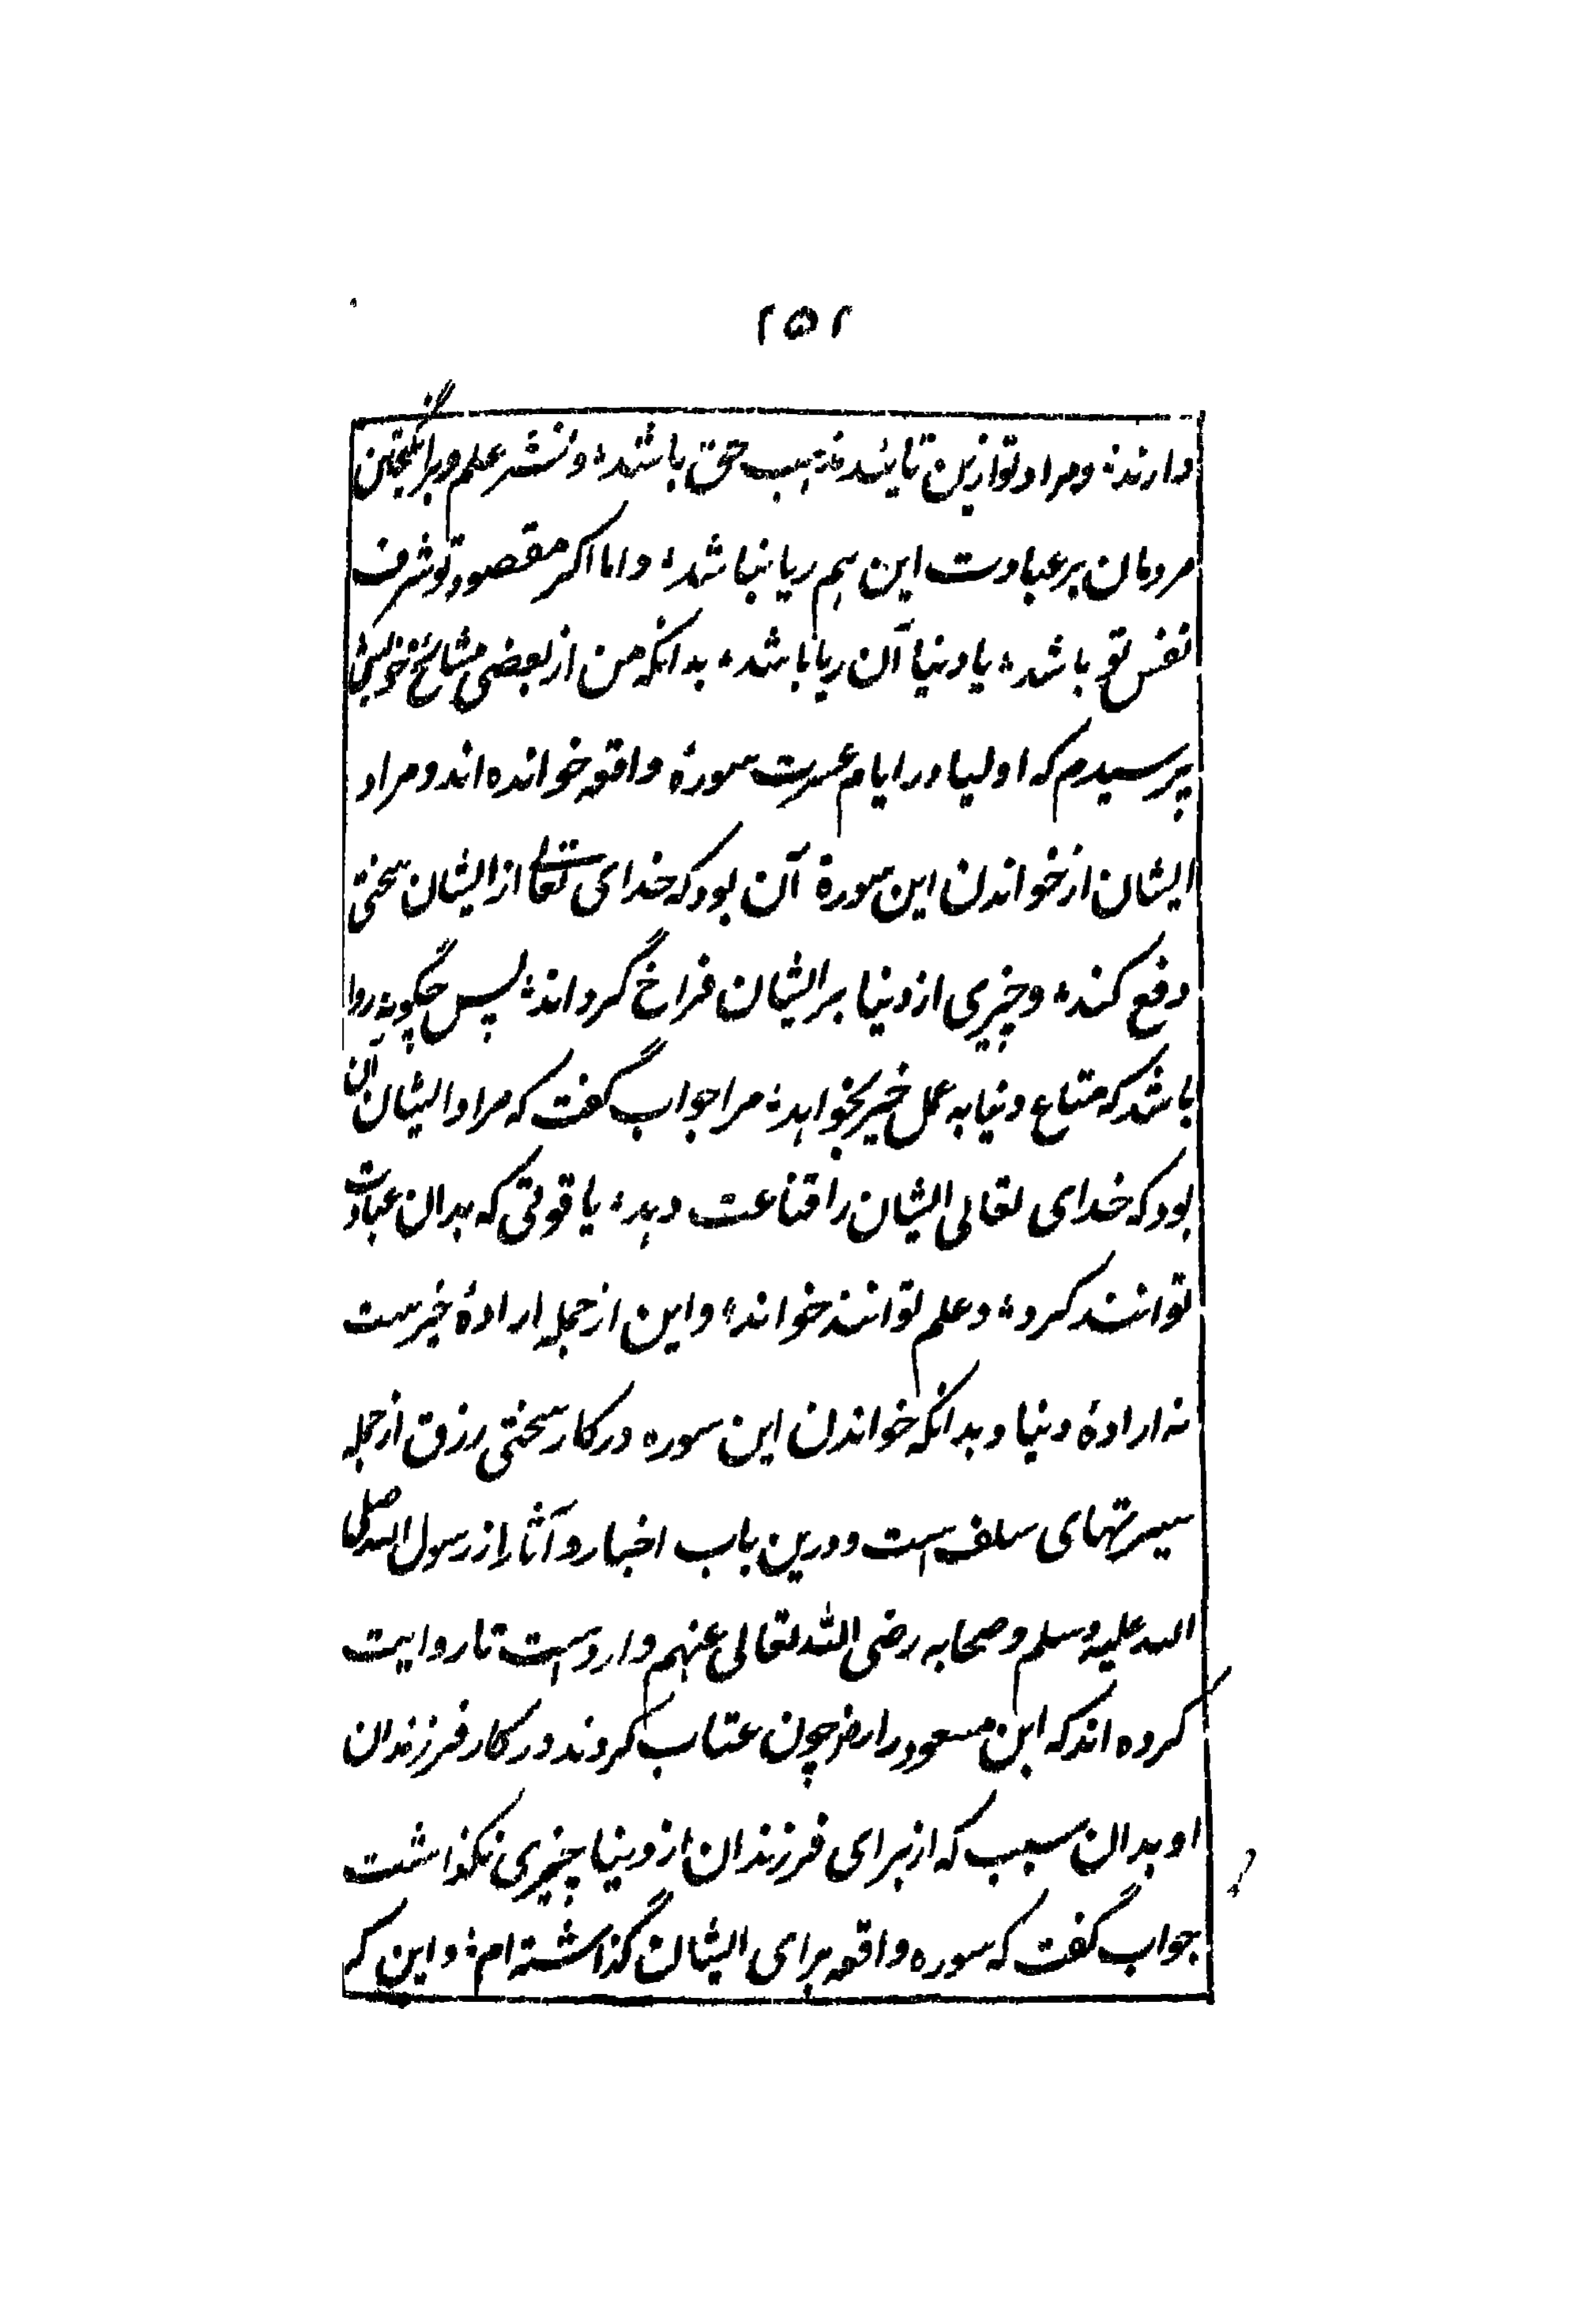 ۲۵۲
دارند؛ ومراد توازین تایید مذهب حق باشد؛ ونشر علم و برانگیختن
مردمان بر عبادت این هم ریا نباشد؛ واما اگر مقصود تو شرف
نفس تو باشد؛ یا دنیا آن ریا باشد؛ بدانکه من از بعضی مشائخ خویش
پرسیدم که اولیا در ایام عسرت سورۂ واقعه خوانده اند و مراد
ایشان از خواندن این سورة آن بود که خدای تعالی از ایشان سختی
دفع کند؛ وچیزی از دنیا بر ایشان فراخ گرداند؛ پس چگونه روا
باشد که متاع دنیا به عمل خیر بخواهد؛ مرا جواب گفت که مراد ایشان آن
بود که خدای تعالی ایشان را قناعت دهد؛ یا قوتی که بدان عبادت
توانند کرد؛ وعلم توانند خواند؛ واین از جمله ارادۂ خیرست
نه ارادۂ دنیا و بدانکه خواندن این سوره در کار سختی رزق از جمله
سیرتهای سلف است ودرین باب اخبار و آثار از رسول الله صلی
الله علیه وسلم وصحابه رضی الله تعالی عنهم وارد است تا روایت
کرده اند که ابن مسعود را رض چون عتاب کردند در کار فرزندان
او بدان سبب که از برای فرزندان از دنیا چیزی نگذاشت
جواب گفت که سوره واقعه برای ایشان گذاشته ام؛ واین که